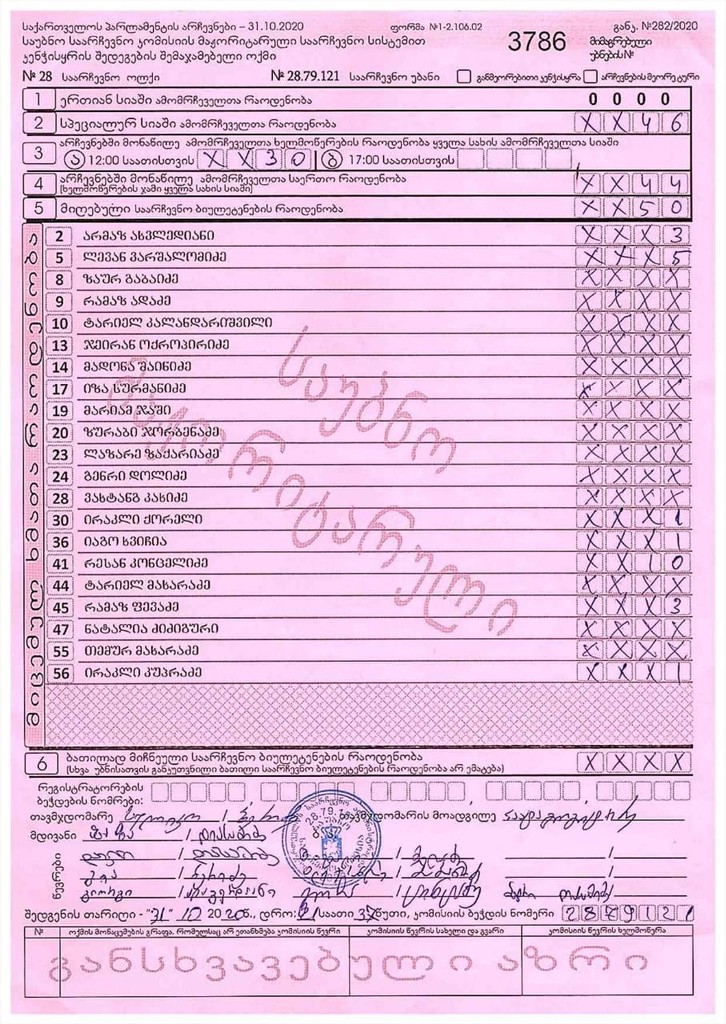 საქართველოს პარლამენტის არჩევნები – 31.10.2020 ფორმა №1-2.106.02 განკ. №282/2020
საუბნო საარჩევნო კომისიის მაჟორიტარული საარჩევნო სისტემით 3786 მიმაგრებული
კენჭისყრის შედეგების შემაჯამებელი ოქმი უბნების№
№ 28 საარჩევნო ოლქი № 28.79.121 საარჩევნო უბანი განმეორებითი კენჭისყრა არჩევნების მეორე ტური
1 ერთიან სიაში ამომრჩეველთა რაოდენობა 0 0 0 0
2 სპეციალურ სიაში ამომრჩეველთა რაოდენობა X X 4 6
3 არჩევნებში მონაწილე ამომრჩეველთა ხელმოწერების რაოდენობა ყველა სახის ამომრჩეველთა სიაში
ა 12:00 საათისთვის X X 3 0 ბ 17:00 საათისთვის
4 არჩევნებში მონაწილე ამომრჩეველთა საერთო რაოდენობა X X 4 4
(ხელმოწერების ჯამი ყველა სახის სიაში)
5 მიღებული საარჩევნო ბიულეტენების რაოდენობა X X 5 0
მიცემულ ხმათა რაოდენობა
2 არმაზ ახვლედიანი X X X 3
5 ლევან ვარშალომიძე X X X 5
8 ზაურ გაბაიძე X X X X
9 რამაზ ადაძე X X X X
10 ტარიელ კალანდარიშვილი X X X X
13 ჯეირან ოქროპირიძე X X X X
14 მადონა შაინიძე X X X X
17 იზა სურმანიძე X X X X
19 მარიამ ჯაში X X X X
20 ზურაბი ჯორბენაძე X X X X
23 ლაზარე ზაქარიაძე X X X X
24 გენრი დოლიძე X X X X
28 ვახტანგ კასიძე X X X X
30 ირაკლი ქორელი X X X 1
36 იაგო ხვიჩია X X X 1
41 რესან კონცელიძე X X 1 0
44 ტარიელ მახარაძე X X X X
45 რამაზ ფევაძე X X X 3
47 ნატალია ძიძიგური X X X X
55 თემურ მახარაძე X X X X
56 ირაკლი კუპრაძე X X X 1
საუბნო
მაჟორიტარული
6 ბათილად მიჩნეული საარჩევნო ბიულეტენების რაოდენობა X X X X
(სხვა უბნისათვის განკუთვნილი ბათილი საარჩევნო ბიულეტენების რაოდენობა არ ემატება)
რეგისტრატორების
ბეჭდების ნომრები:
თავმჯდომარე თავმჯდომარის მოადგილე
მდივანი
წევრები
შედგენის თარიღი - "31" 10 2020 წ., დრო: 21 საათი 37 წუთი, კომისიის ბეჭდის ნომერი 2 8 7 9 1 2 1
№ ოქმის მონაცემების გრაფა, რომელსაც არ ეთანხმება კომისიის წევრი კომისიის წევრის სახელი და გვარი კომისიის წევრის ხელმოწერა
განსხვავებული აზრი